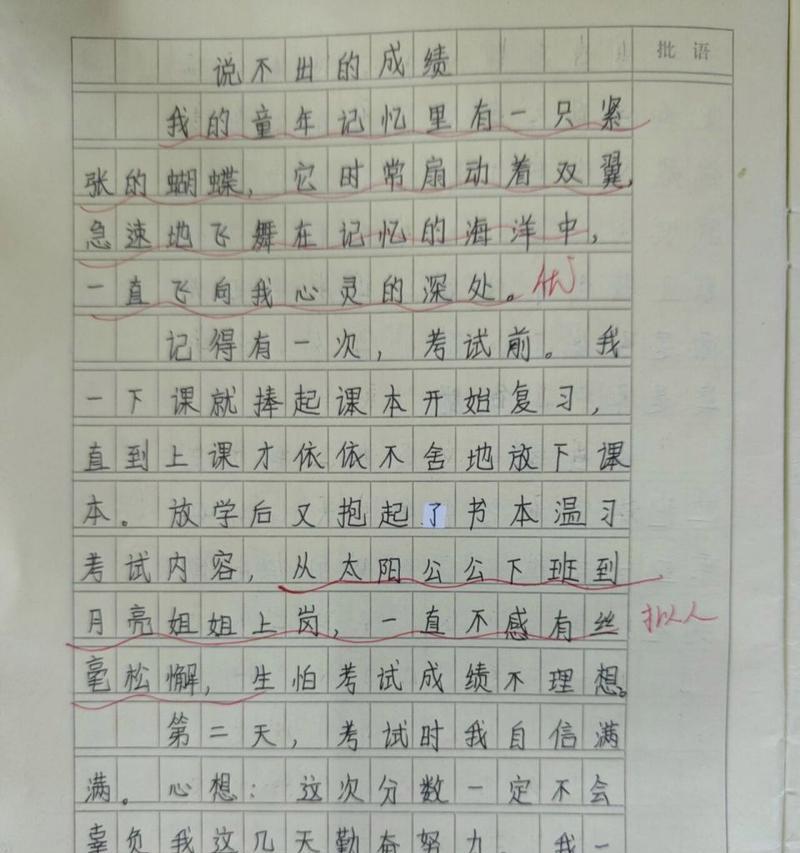 批语
说不出的成绩
我的童年记忆里有一只紧
张的蝴蝶，它时常扇动着双翼，
急速地飞舞在记忆的海洋中，
一直飞向我心灵的深处。优
记得有一次，考试前。我
一下课就捧起课本开始复习，
直到上课才依依不舍地放下课
本。放学后又抱起了书本温习
考试内容，从太阳公公下班到
月亮姐姐上岗，一直不感有丝
拟人
毫松懈，生怕考试成绩不理想。
第二天，考试时我自信满
满。心想：这次分数一定不会
辜负我这几天勤奋努力。我一